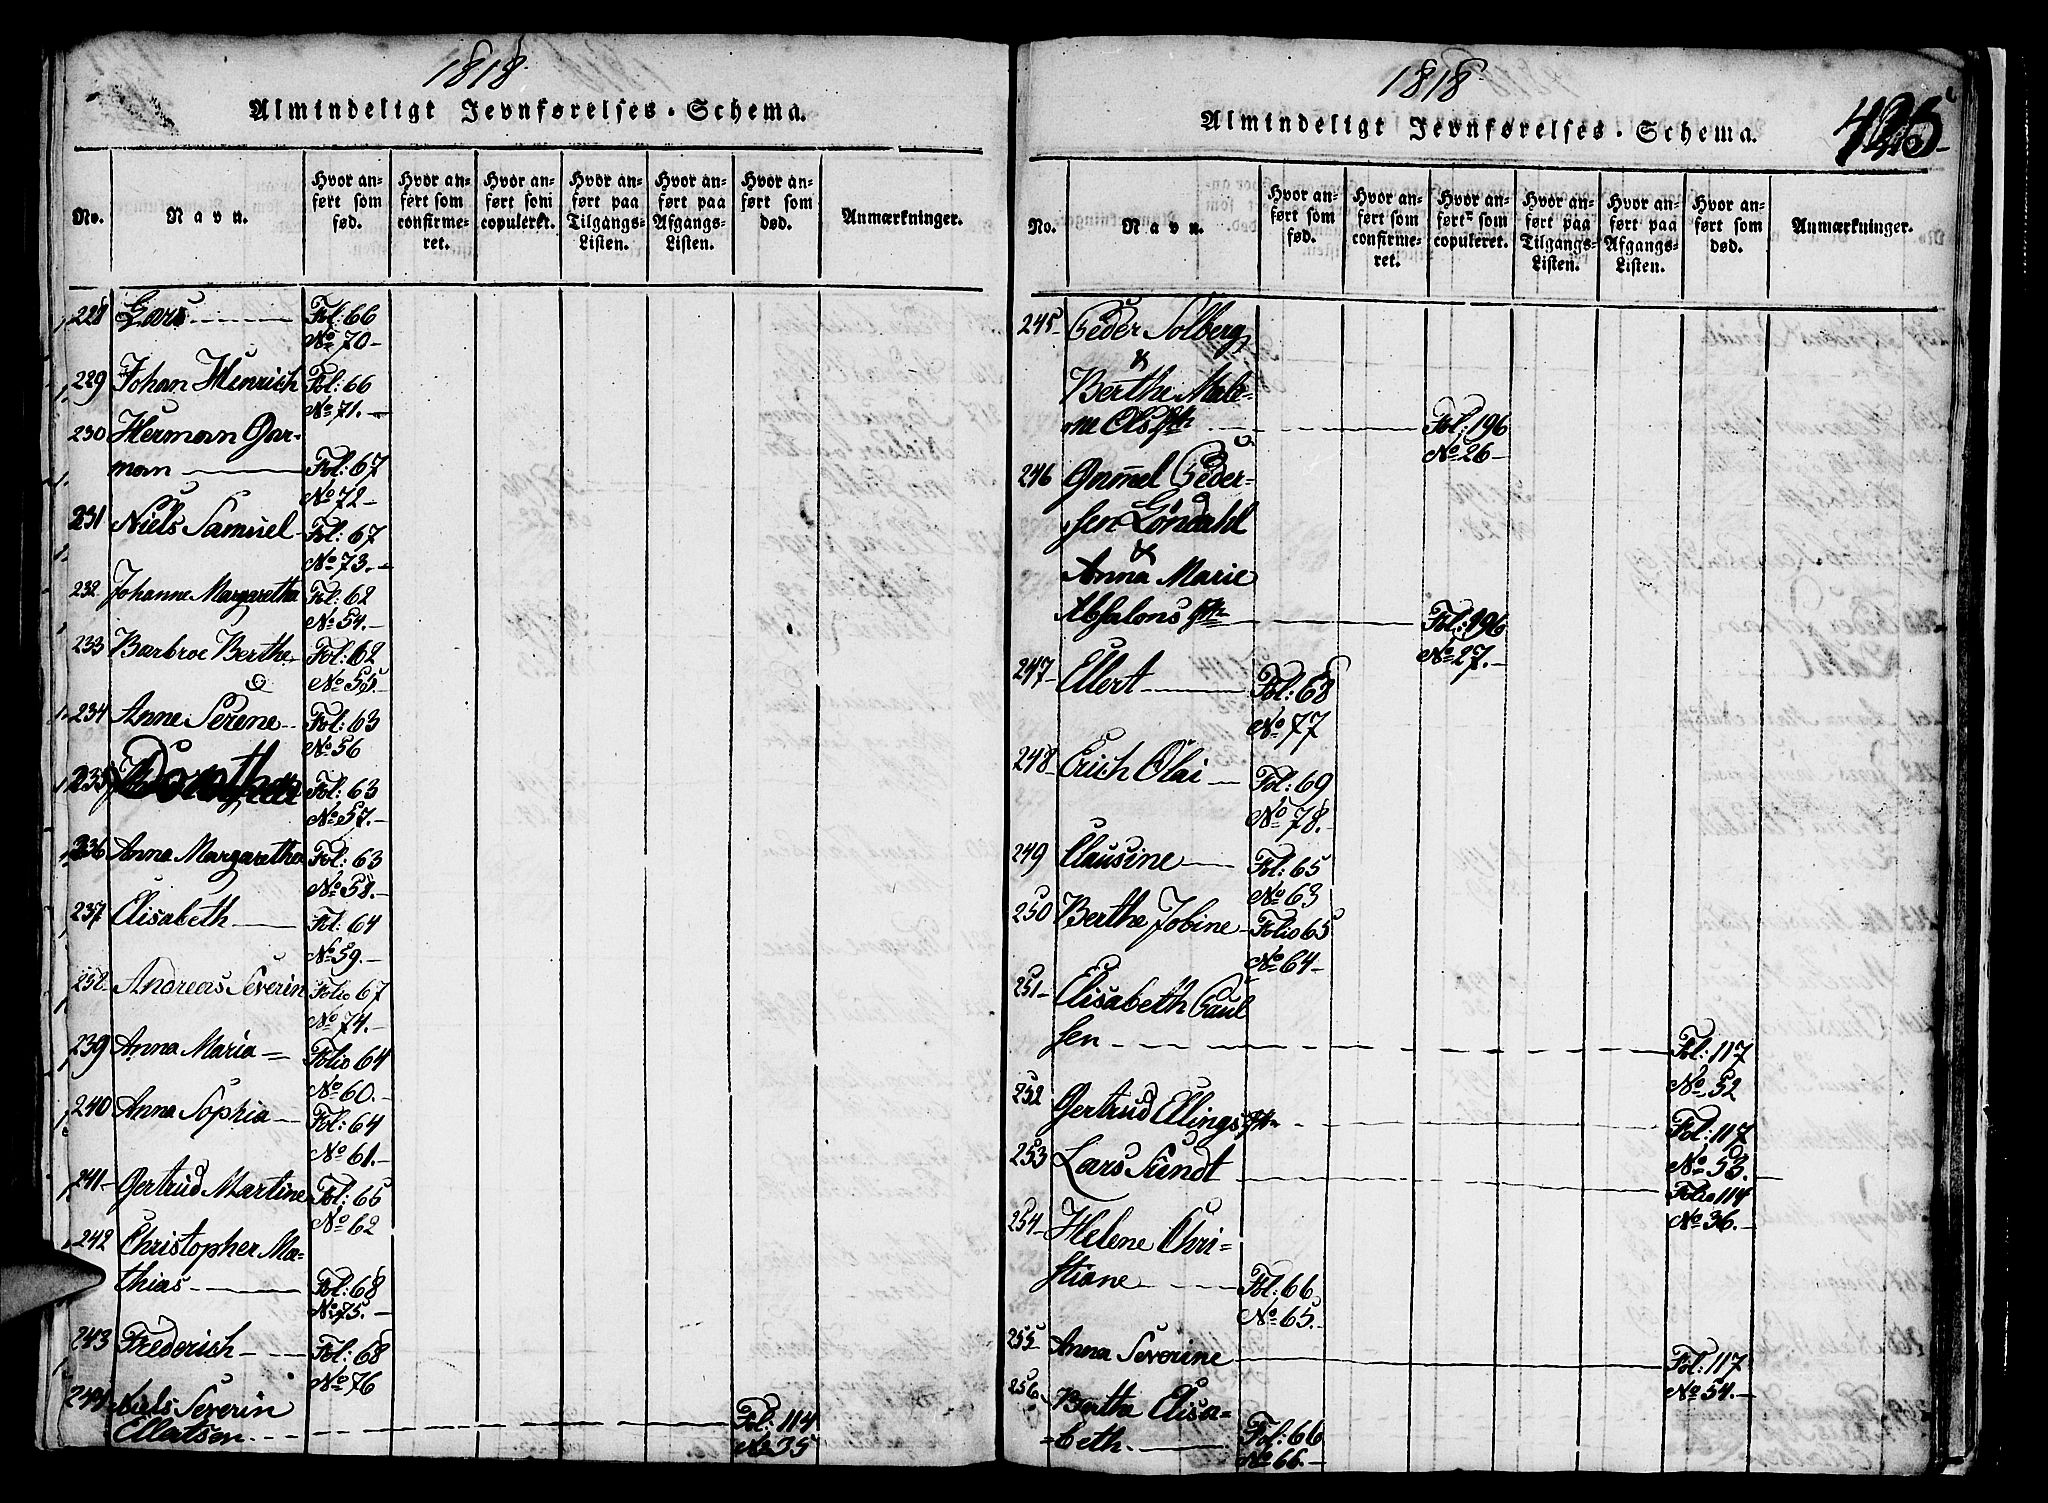 1818
Almindeligt Jevnførelses-Schema.
No.
Navn.
Hvor an-
ført som
fød.
Hvor an-
ført som
confirme-
ret.
Hvor an-
ført som
copuleret.
Hvor an-
ført paa
Tilgangs-
Listen.
Hvor an-
ført paa
Afgangs-
Listen.
Hvor an-
ført som
død.
Anmærkninger.
228 Lars Fol: 66
No 70
229 Johan Hinrich Fol: 66
No 71.
230 Herman Gar-
man Fol: 67
No 72
231 Niels Samuel Fol: 67
No 73.
232 Johanne Margaretha Fol: 62
No 54.
233 Barbroe Berthe Fol: 62
No 55.
234 Anne Serene Fol: 63
No 56
235 Dorthea Fol: 63
No 57.
236 Anna Margaretha Fol: 63
No 58.
237 Elisabeth Fol: 64
No 59.
238 Andreas Severin Folio 67
No 74.
239 Anna Maria Folio 64
No 60.
240 Anna Sophia Fol: 64
No 61.
241 Gertrud Martine Fol: 65
No 62
242 Christopher Ma-
thias Fol: 68
No 75.
243 Frederich Fol: 68
No 76
244 Niels Severin
Ellertsen Fol: 114
No 35
1818
Almindeligt Jevnførelses-Schema.
No.
Navn.
Hvor an-
ført som
fød.
Hvor an-
ført som
confirme-
ret.
Hvor an-
ført som
copuleret.
Hvor an-
ført paa
Tilgangs-
Listen.
Hvor an-
ført paa
Afgangs-
Listen.
Hvor an-
ført som
død.
Anmærkninger.
245 Peder Solberg
&
Berthe Male-
ne Olsdtr Fol: 196
No 26
246 Gunnel Peder-
sen Löndahl
&
Anna Marie
Absalonsdtr Fol: 196
No 27.
247 Ellert Fol: 68
No 77
248 Erich Olai Fol: 69
No 78.
249 Clausine Fol: 65
No 63
250 Berthe Jobine Folio 65
No 64
251 Elisabeth Paul
sen Fol: 117
No 52
252 Gertrud Ellingsdtr Fol: 117
No 53.
253 Lars Sundt Folio 114
No 36.
254 Helene Chri-
stiane Fol: 66
No 65.
255 Anna Severine Fol: 117
No 54.
256 Bertha Elisa-
beth. Fol: 66
No 66.